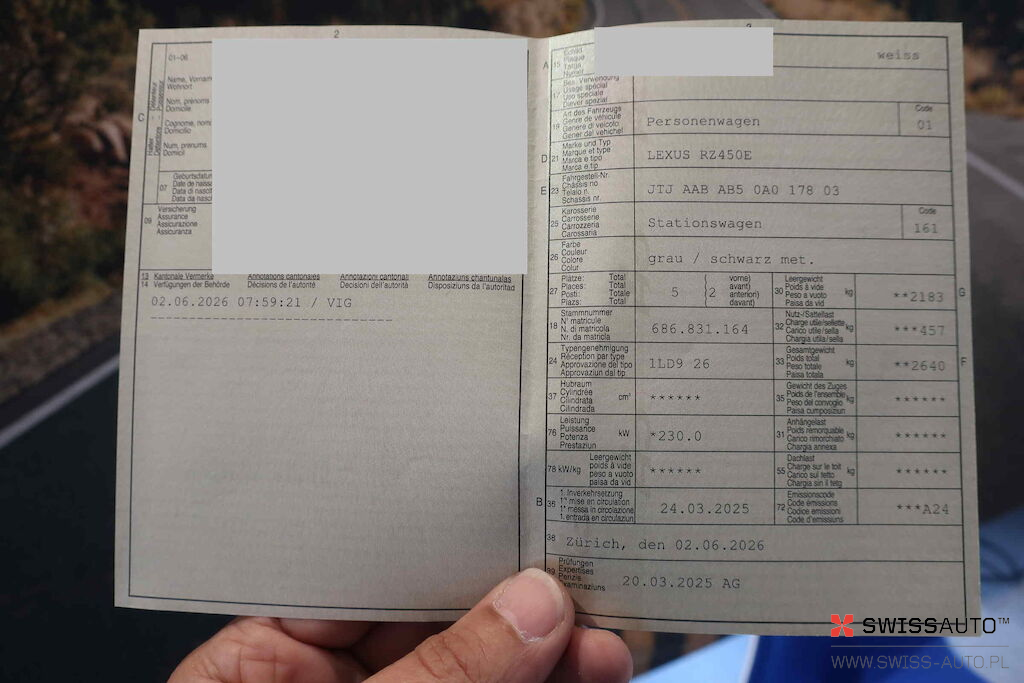 2
01–06
Name, Vorname
Wohnort
Nom, prénoms
Domicile
Cognome, nomi
Domicilio
Num, prenums
Domicil
C
Halter
Détenteur
Detentore
Possessur
07
Geburtsdatum
Date de naiss
Data di nascit
Data da nasch
09
Versicherung
Assurance
Assicurazione
Assicuranza
13 Kantonale Vermerke Annotations cantonales Annotazioni cantonali Annotaziuns chantunalas
14 Verfügungen der Behörde Décisions de l'autorité Decisioni dell'autorità Disposiziuns da l'autoritad
02.06.2026 07:59:21 / VIG
3
A 15 Schild
Plaque
Targa
Numer
weiss
17 Bes. Verwendung
Usage spécial
Uso speciale
Diever spezial
19 Art des Fahrzeugs
Genre de véhicule
Genere di veicolo
Gener dal vehichel
Personenwagen
Code
01
D 21 Marke und Typ
Marque et type
Marca e tipo
Marca e tip
LEXUS RZ450E
E 23 Fahrgestell-Nr.
Châssis no
Telaio n.
Schassis nr.
JTJ AAB AB5 0A0 178 03
25 Karosserie
Carrosserie
Carrozzeria
Carossaria
Stationswagen
Code
161
26 Farbe
Couleur
Colore
Colur
grau / schwarz met.
27 Plätze: Total
Places: Total
Posti: Totale
Plazs: Total
5 (2 vorne)
avant)
anteriori)
davant)
30 Leergewicht
Poids à vide
Peso a vuoto
Paisa da vid
kg
**2183
G
18 Stammnummer
N° matricule
N. di matricola
Nr. da matricla
686.831.164
32 Nutz-/Sattellast
Charge utile/sellette
Carico utile/sella
Chargia utila/sella
kg
***457
24 Typengenehmigung
Réception par type
Approvazione del tipo
Approvaziun dal tip
1LD9 26
33 Gesamtgewicht
Poids total
Peso totale
Paisa totala
kg
**2640
F
37 Hubraum
Cylindrée
Cilindrata
Cilindrada
cm³
******
35 Gewicht des Zuges
Poids de l'ensemble
Peso del convoglio
Paisa cumposiziun
kg
******
76 Leistung
Puissance
Potenza
Prestaziun
kW
*230.0
31 Anhängelast
Poids remorquable
Carico rimorchiato
Chargia annexa
kg
******
78 kW/kg
Leergewicht
poids à vide
peso a vuoto
paisa da vid
******
55 Dachlast
Charge sur le toit
Carico sul tetto
Chargia sin il tetg
kg
******
B 36 1. Inverkehrsetzung
1re mise en circulation
1a messa in circolazione
1. entrada en circulaziun
24.03.2025
72 Emissionscode
Code émissions
Codice emissioni
Code d'emissiuns
***A24
38 Zürich, den 02.06.2026
39 Prüfungen
Expertises
Perizie
Examinaziuns
20.03.2025 AG
SWISSAUTO™
WWW.SWISS-AUTO.PL